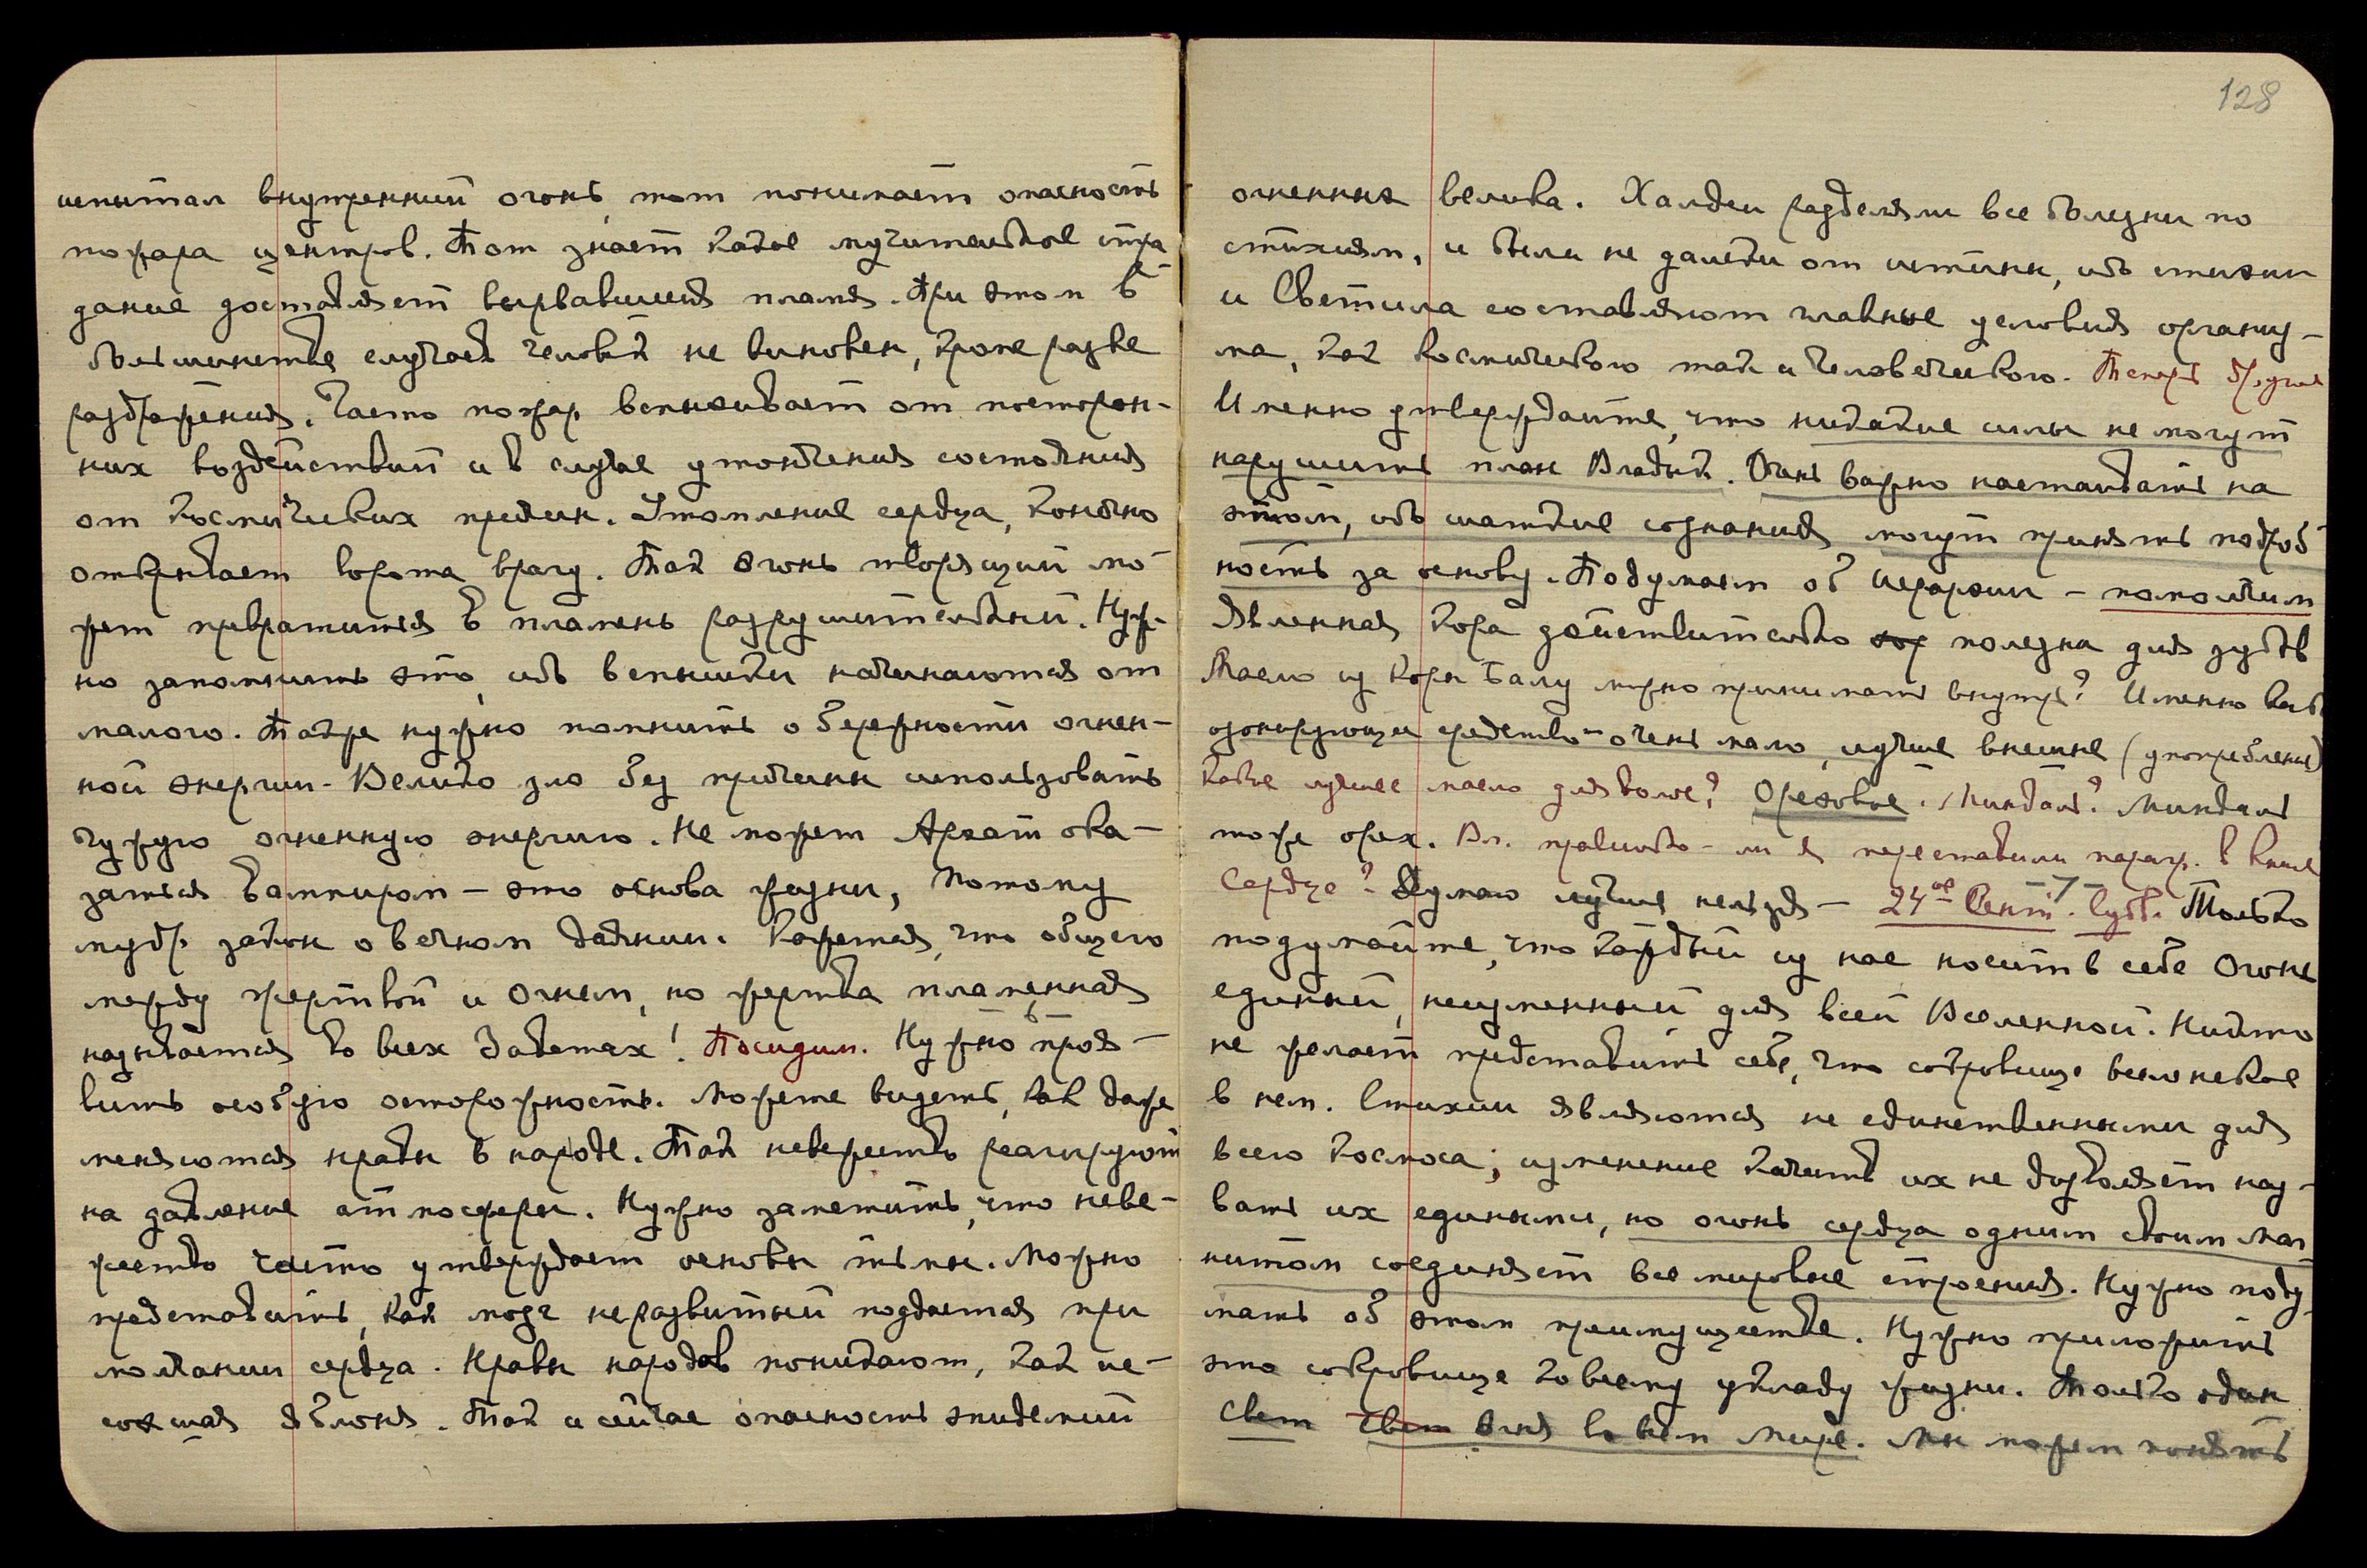 испытал внутренний огонь, тот понимает опасность
пожара центров. Тот знает какое мучительное стра-
дание доставляет вырвавшееся пламя. При этом в
большинстве случаев человек не виновен, кроме разве
раздражения. Часто пожар вспыхивает от посторон-
них воздействий и в случае утончения состояния
от космических причин. Утомление сердца, конечно
открывает ворота врагу. Так Огонь творящий мо-
жет превратиться в пламень разрушительный. Нуж-
но запомнить это, ибо вспышки начинаются от
малого. Также нужно помнить о бережности огнен-
ной энергии. Велико зло без причины использовать
чужую огненную энергию. Не может Архат ока-
заться вампиром – это основа жизни, потому
мудр закон о вечном даянии. Кажется, что общего
между жертвой и Огнем, но жертва пламенная
называется во всех Заветах! Посидим. Нужно прояв-
вить особую осторожность. Можете видеть, как даже
меняются нравы в народе. Так невежество реагирует
на давление атмосферы. Нужно заметить, что неве-
жество часто утверждает основы тьмы. Можно
представить, как мозг неразвитый поддается при
молчании сердца. Нравы народов поникают, как ис-
сохшая яблоня. Так и сейчас опасность эпидемий
128
огненных велика. Халдеи разделяли все болезни по
стихиям, и были не далеки от истины, ибо стихии
и Светила составляют главные условия организ-
ма, как космического так и человеческого. Теперь
Именно утверждайте, что никакие силы не могут
нарушить план Владык. Очень важно настаивать на
этом, ибо шаткие сознания могут принять подроб-
ность за основу. Подумаем об Иерархии – помолчим
Явленная кора действительно полезна для зубов
Масло из коры Балу можно принимать внутрь? Именно как
озонирующее средство – очень мало, лучше внешне (употребление)
Какое лучшее масло для кожи? Ореховое. Миндаль? Миндаль
тоже орех. Вл. правильно-ли я переставили параг. в книге
Сердце? Думаю лучше нельзя – 24ое Сент. – 7 – Субб. Только
подумайте, что каждый из нас носит в себе Огонь
единый, неизменный для всей Вселенной. Никто
не желает представить себе, что сокровище вселенское
в нем. Стихии являются не единственными для
всего Космоса; изменение качеств их не дозволяет наз-
вать их едиными, но огонь сердца одним своим маг
нитом соединяет все мировые строения. Нужно поду-
мать об этом преимуществе. Нужно приложить
это сокровище ко всему укладу жизни. Только один
Свет Свет Огня во всем Мире. Мы можем понять